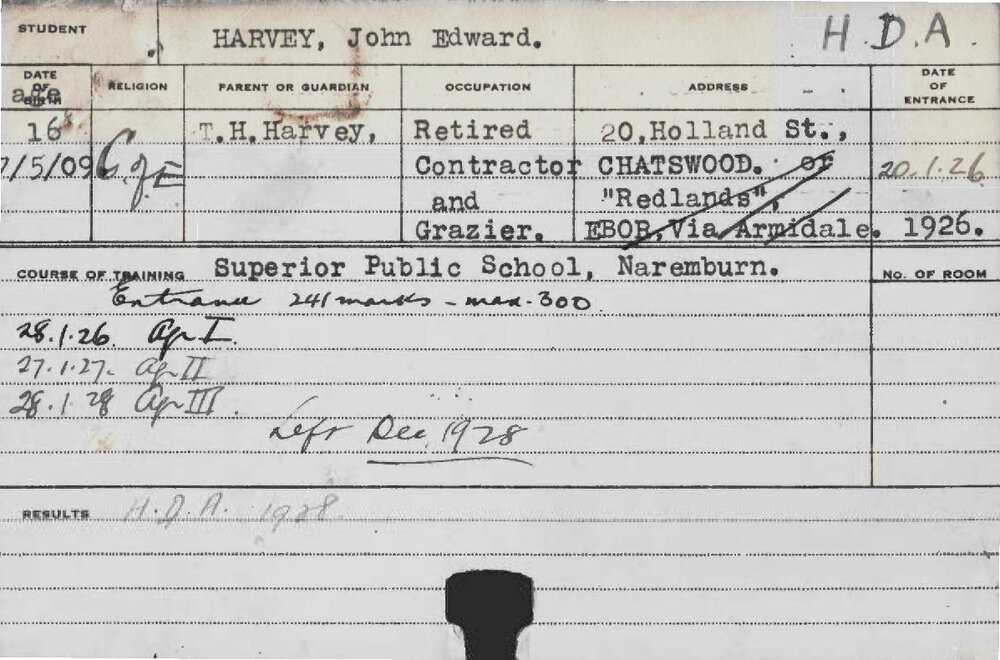 STUDENT HARVEY, John Edward. H.D.A.
DATE OF BIRTH age RELIGION PARENT OR GUARDIAN OCCUPATION ADDRESS DATE OF ENTRANCE
16 T.H.Harvey, Retired 20,Holland St.,
7/5/09 C of E Contractor CHATSWOOD. or 20.1.26
and "Redlands",
Grazier. EBOR,Via Armidale. 1926.
COURSE OF TRAINING Superior Public School, Naremburn. No. OF ROOM
Entrance 241 marks - max. 300
28.1.26. Ag I.
27.1.27. Ag II
28.1 28 Ag III.
Left Dec. 1928
RESULTS H.D.A. 1928.